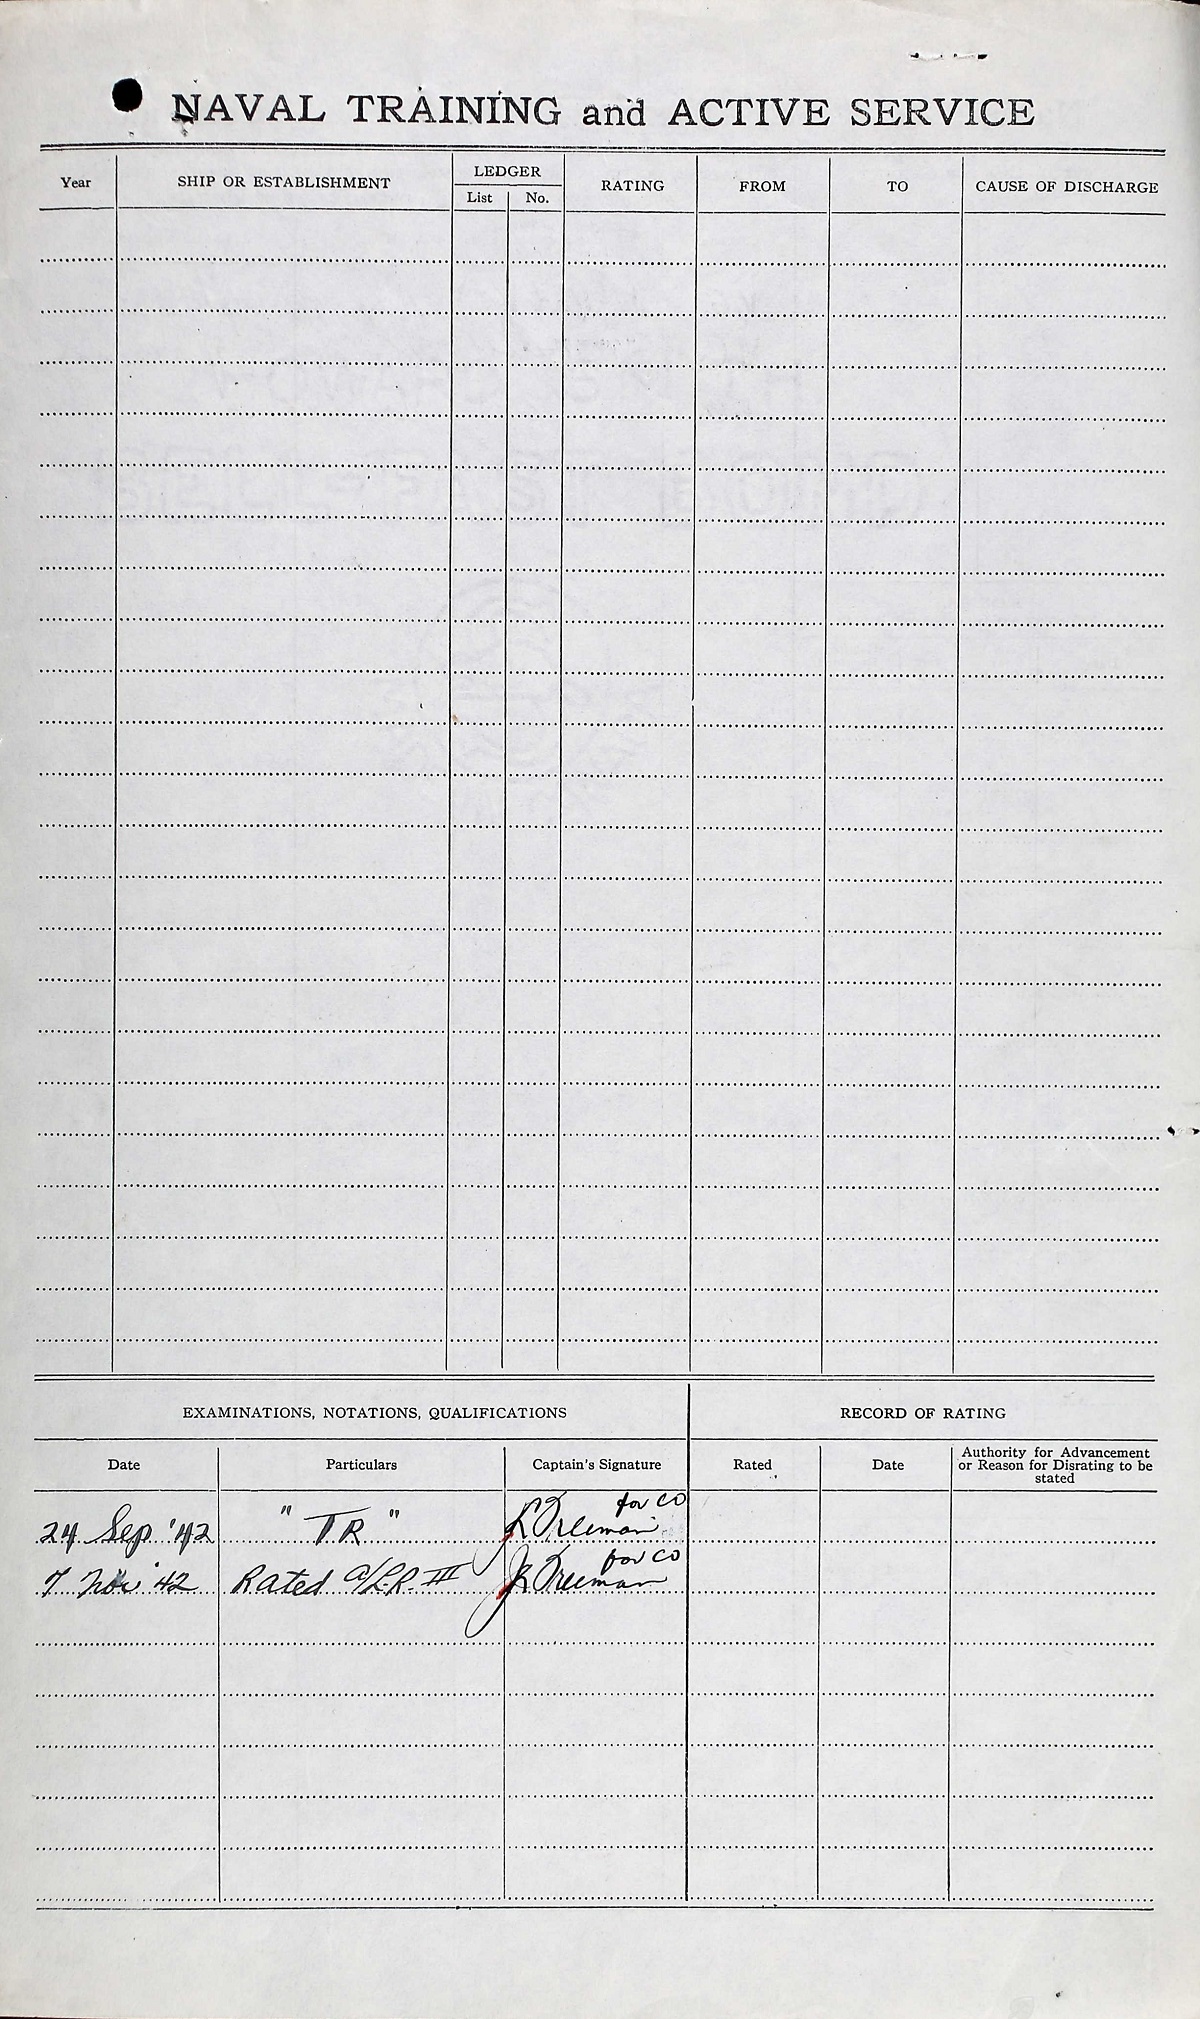 NAVAL TRAINING and ACTIVE SERVICE
Year SHIP OR ESTABLISHMENT LEDGER RATING FROM TO CAUSE OF DISCHARGE
List No.
EXAMINATIONS, NOTATIONS, QUALIFICATIONS RECORD OF RATING
Date Particulars Captain's Signature Rated Date Authority for Advancement
or Reason for Disrating to be
stated
for CO
24 Sep '42 "TR" Freeman
for CO
7 Nov '42 Rated A/L.R. III Freeman